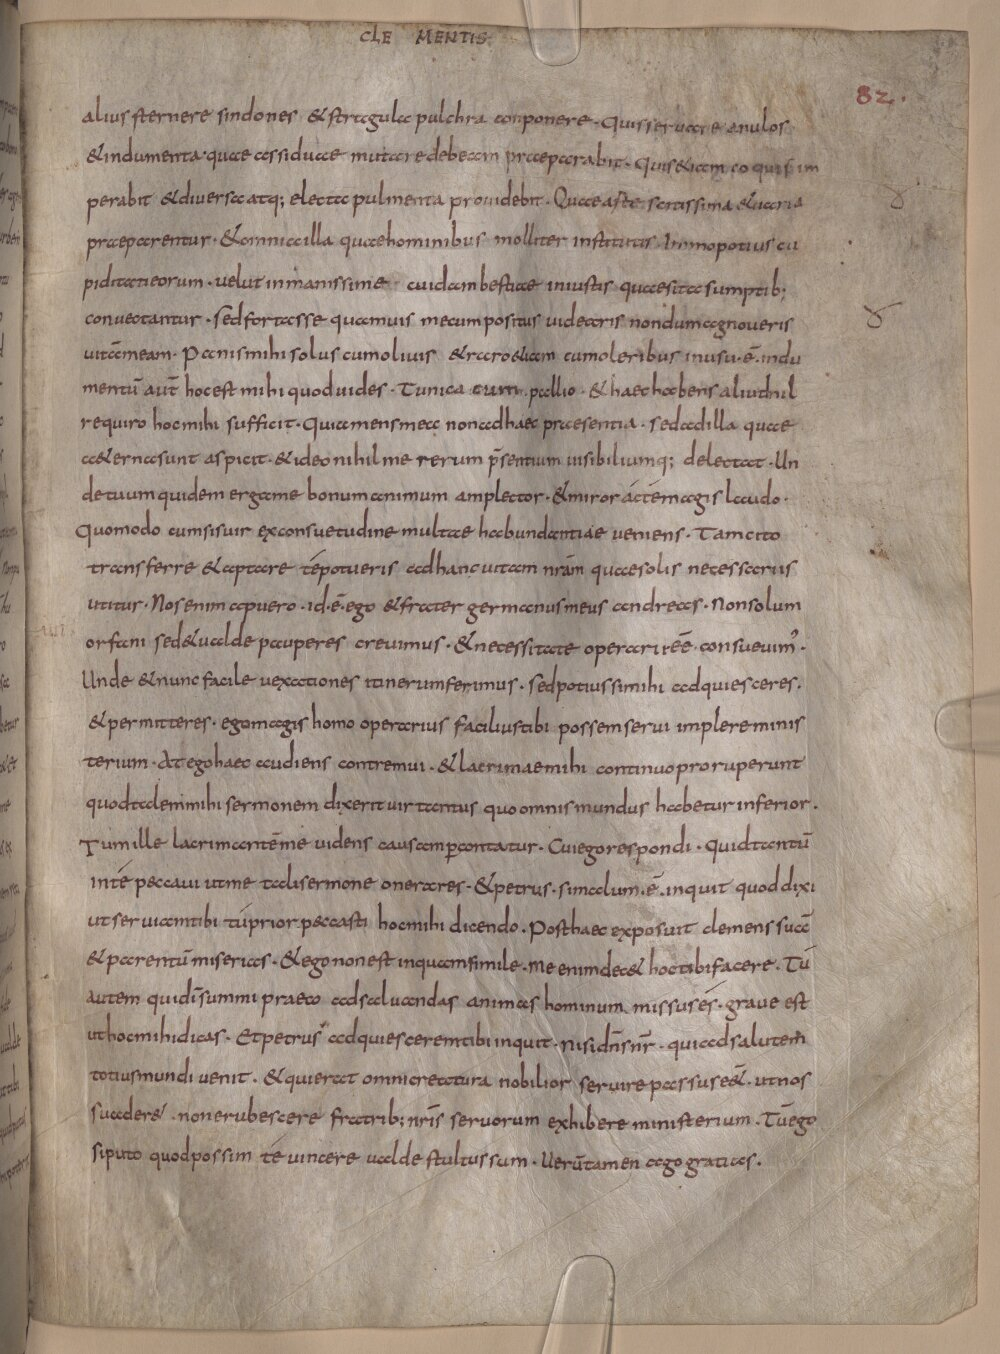 CLE MENTIS
82.
alius sternere sindones & stragula pulchra componere. Quis seruare anulos
& indumenta. quae assiduae mutare debeam praeparabit. Quis & iam co quis im
perabit & diuersa atq; electa pulmenta prouidebit. Quae a uaria
praeparentur. & omnia illa quae hominibus molliter institutis. Immo potius cu
piditati eorum. uelut inmanissime cuidam bestiae iniustis quaesita sumptib;
conuectantur. sed fortasse quamuis mecum positus uidearis nondum agnoueris
uitā meam. Panis mihi solus cum oliuis & raro & iam cum oleribus in usu. ē. indu
mentū aūt hoc est mihi quod uides. Tunica cum pallio. & haec habens aliut nil
requiro hoc mihi sufficit. Quia mens mea non ad haec praesentia. sed ad illa quae
a&erna sunt aspicit. & ideo nihil me rerum p̄sentium uisibiliumq; delectat. Un
de tuum quidem erga me bonum animum amplector. & miror āc tē magis laudo.
Quomodo cum sis uir ex consuetudine multae habundantiae ueniens. Tam cito
transferre & aptare tē potueris ad hanc uitam nrām quae solis necessariis
utitur. Nos enim a puero. id. ē. ego & frater germanus meus andreas. Non solum
orfani sed & ualde pauperes creuimus. & necessitate operarii eē consueuim᾿.
Unde & nunc facile uexationes itinerum ferimus. sed potius si mihi adquiesceres.
& permitteres. ego magis homo operarius facilius tibi possem serui implere minis
terium. At ego haec audiens contremui. & lacrimae mihi continuo proruperunt
quod talem mihi sermonem dixerit uir tantus quo omnis mundus habetur inferior.
Tum ille lacrimantē me uidens causam p̄contatur. Cui ego respondi. Quid tantū
in tē peccaui ut me tali sermone onerares. & petrus. si malum. ē. inquit quod dixi
ut seruiam tibi tū prior peccasti hoc mihi dicendo. Post haec exposuit clemens suā
& parentū miserias. & ego non est inquam simile. me enim dec& hoc tibi facere. Tū
autem qui dī summi praeco ad saluandas animas hominum missus és. graue est
ut hoc mihi dicas. Et petrus adquiescerem tibi inquit. nisi dn̄s nr̄. qui ad salutem
totius mundi uenit. & qui erat omni creatura nobilior seruire passus eē&. ut nos
suader& non erubescere fratrib; nrīs seruorum exhibere ministerium. Tū ego
si puto quod possim tē uincere ualde stultus sum. Uerūtamen ago gratias.